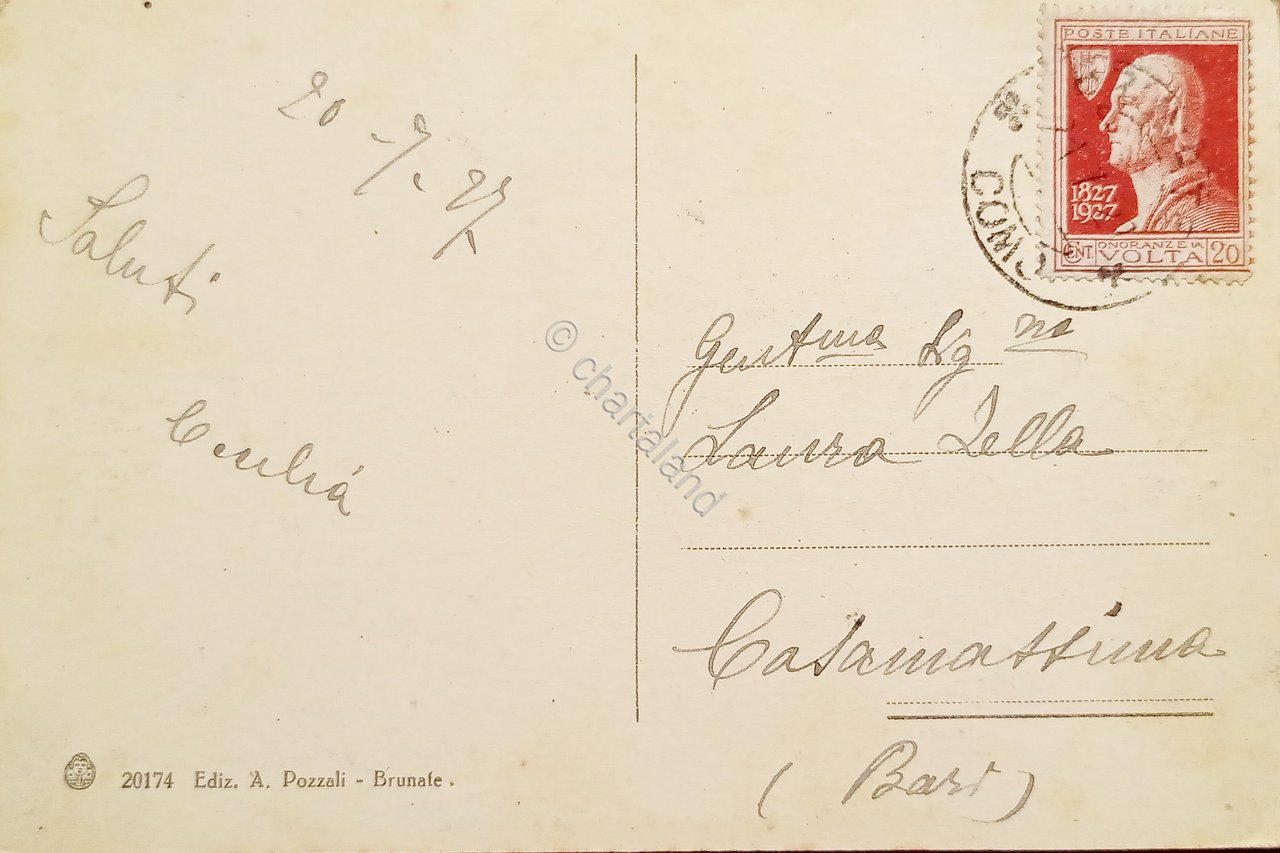 20-7-27
Saluti
Cecilia
20174 Ediz. A. Pozzali - Brunate.
POSTE ITALIANE
1827
1927
CENT. ONORANZE A VOLTA 20
COMO
Gent.ma Sig.na
Laura Zella
Casamassima
(Bari)
© chartaland